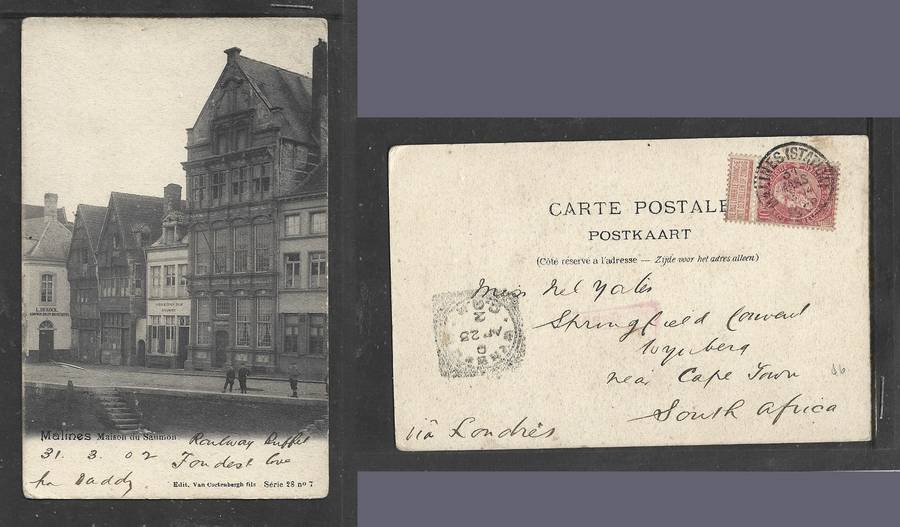 Malines Maison du Saumon
Railway Buffet
31. 3. 02
Fondest love
Daddy
Edit. Van Cortenbergh fils Série 28 nº 7
CARTE POSTALE
POSTKAART
(Côté réservé à l'adresse — Zijde voor het adres alleen)
Miss Nel Yates
Springfield Convent
Wynberg
near Cape Town
South Africa
via Londres